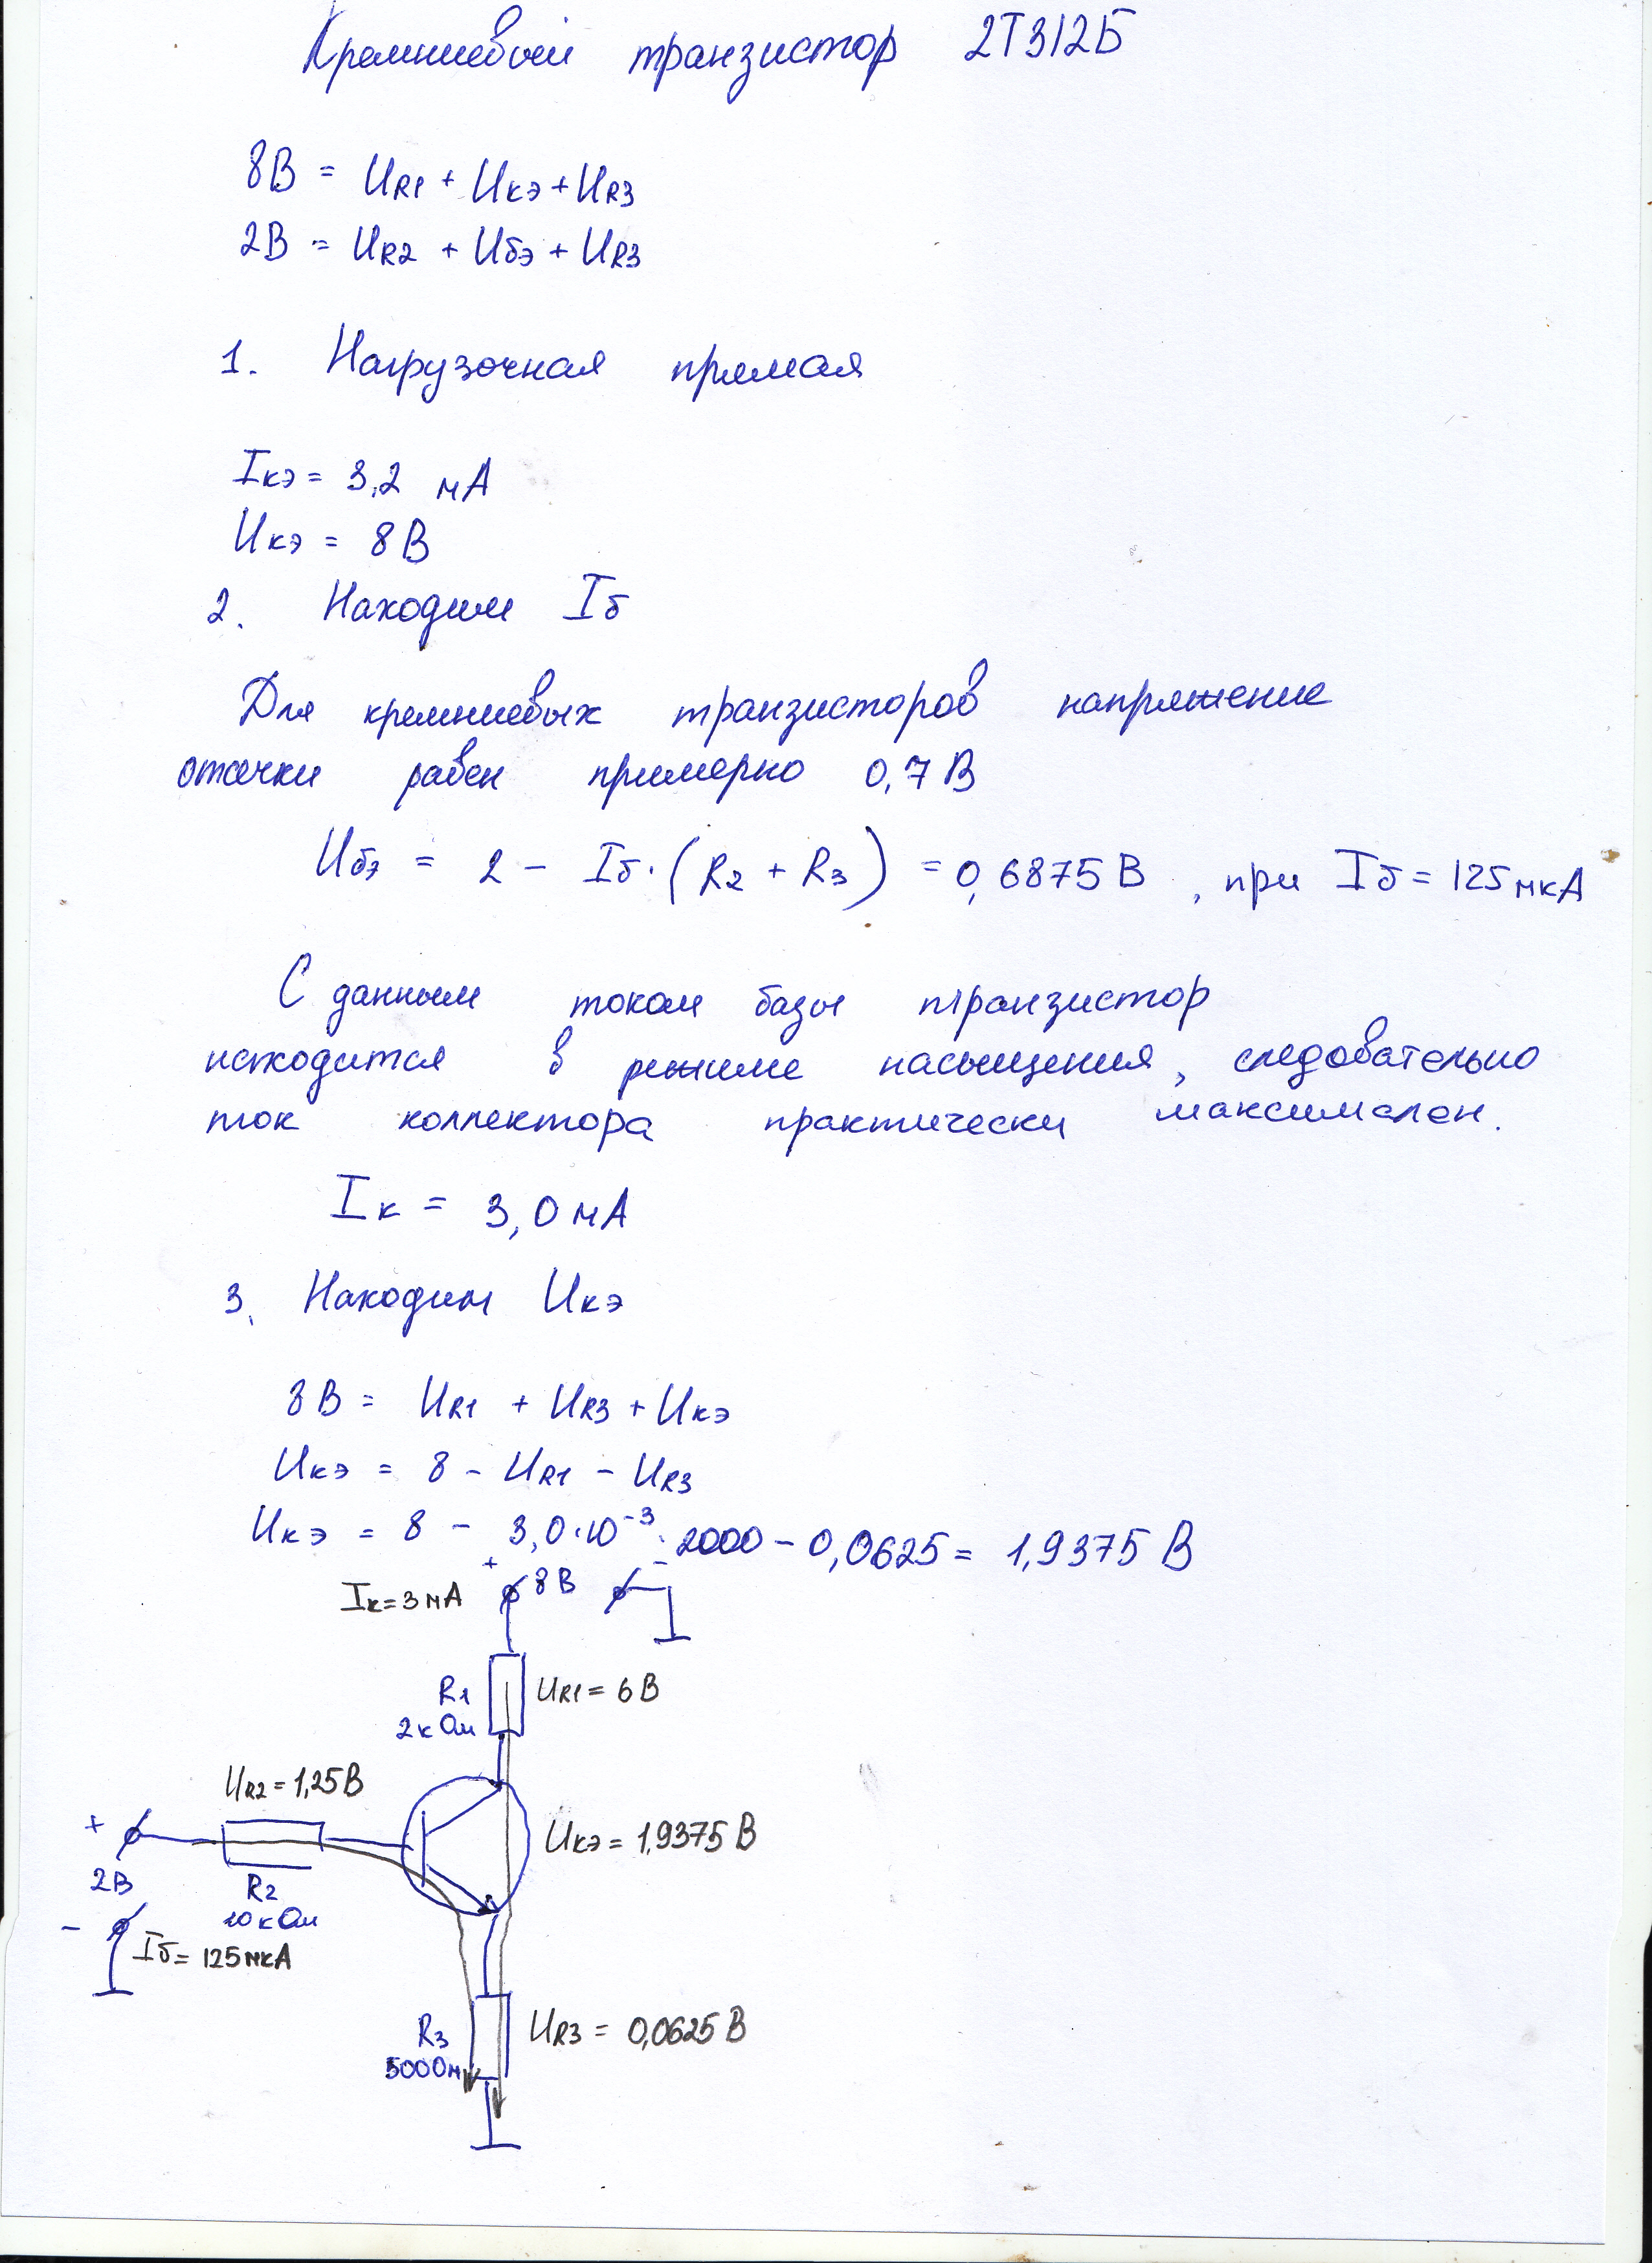 Кремниевый транзистор 2Т312Б
8В = UR1 + Uкэ + UR3
2В = UR2 + Uбэ + UR3
1. Нагрузочная прямая
Iкэ = 3,2 мА
Uкэ = 8В
2. Находим Iб
Для кремниевых транзисторов напряжение
отсечки равен примерно 0,7 В
Uбэ = 2 - Iб·(R2 + R3) = 0,6875 В, при Iб = 125 мкА
С данным током базы транзистор
находится в режиме насыщения, следовательно
ток коллектора практически максимален.
Iк = 3,0 мА
3. Находим Uкэ
8В = UR1 + UR3 + Uкэ
Uкэ = 8 - UR1 - UR3
Uкэ = 8 - 3,0·10⁻³·2000 - 0,0625 = 1,9375 В
Iк = 3 мА + 8В -
R1 UR1 = 6 В
2к Ом
UR2 = 1,25 В
+ Uкэ = 1,9375 В
2В R2
10 кОм
- Iб = 125 мкА
R3 UR3 = 0,0625 В
500 Ом